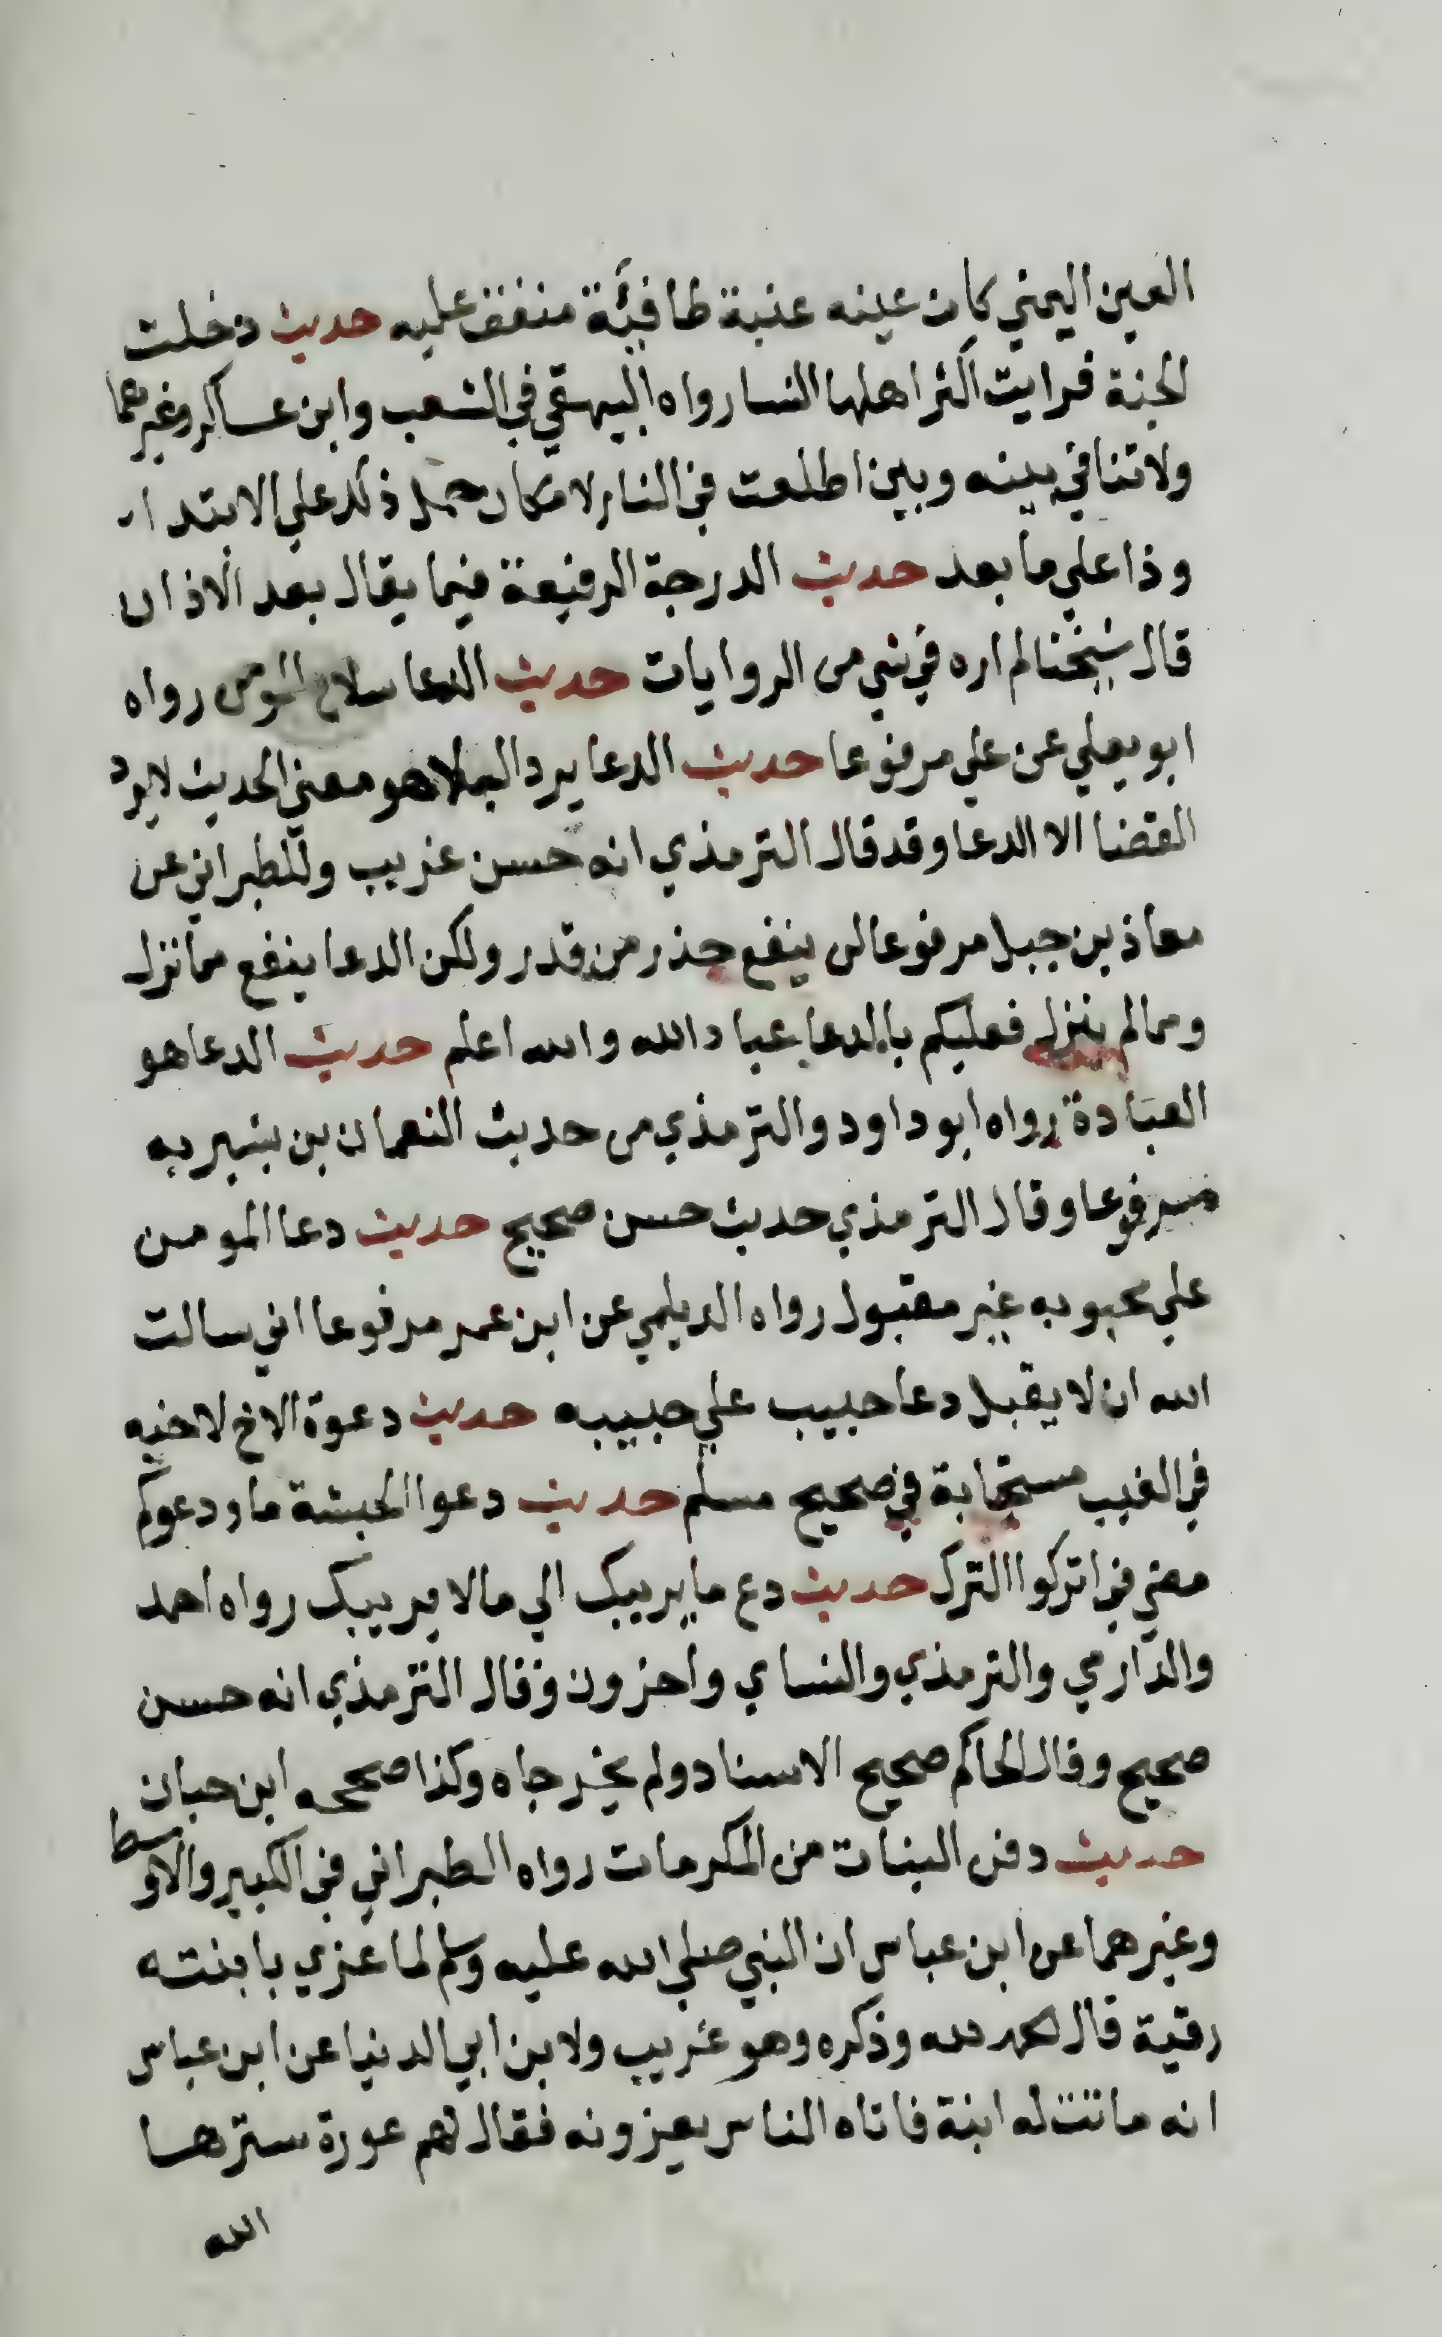 العين اليمني كان عينه عنبة طافئة متفق عليه حديث دخلت
الجنة فرايت اكثر اهلها النسا رواه البيهقي في الشعب وابن عساكر وغيرهما
ولا تنافي بينه وبين اطلعت في النار لامكان حمل ذلك علي الابتدا
وذا علي ما بعد حديث الدرجة الرفيعة فيما يقال بعد الاذان
قال شيخنا لم اره في شي من الروايات حديث الدعا سلاح المؤمن رواه
ابو يعلي عن علي مرفوعا حديث الدعا يرد البلا هو معني الحديث لا يرد
القضا الا الدعا وقد قال الترمذي انه حسن غريب وللطبراني عن
معاذ بن جبل مرفوعا لن ينفع حذر من قدر ولكن الدعا ينفع مما نزل
ومما لم ينزل فعليكم بالدعا عباد الله والله اعلم حديث الدعا هو
العبادة رواه ابو داود والترمذي من حديث النعمان بن بشير به
مرفوعا وقال الترمذي حديث حسن صحيح حديث دعا المومن
علي محبوبه غير مقبول رواه الديلمي عن ابن عمر مرفوعا اني سالت
الله ان لا يقبل دعا حبيب علي حبيبه حديث دعوة الاخ لاخيه
في الغيب مستجابة في صحيح مسلم حديث دعوا الحبشة ما ودعوكم
مضي في اتركوا الترك حديث دع ما يريبك الي ما لا يريبك رواه احمد
والدارمي والترمذي والنساي واخرون وقال الترمذي انه حسن
صحيح وقال الحاكم صحيح الاسناد ولم يخرجاه وكذا صححه ابن حبان
حديث دفن البنات من المكرمات رواه الطبراني في الكبير والاوسط
وغيرهما عن ابن عباس ان النبي صلي الله عليه وسلم لما عزي بابنته
رقية قال الحمد لله وذكره وهو غريب ولابن ابي الدنيا عن ابن عباس
انه ماتت له ابنة فاتاه الناس يعزونه فقال لهم عورة سترها
الله